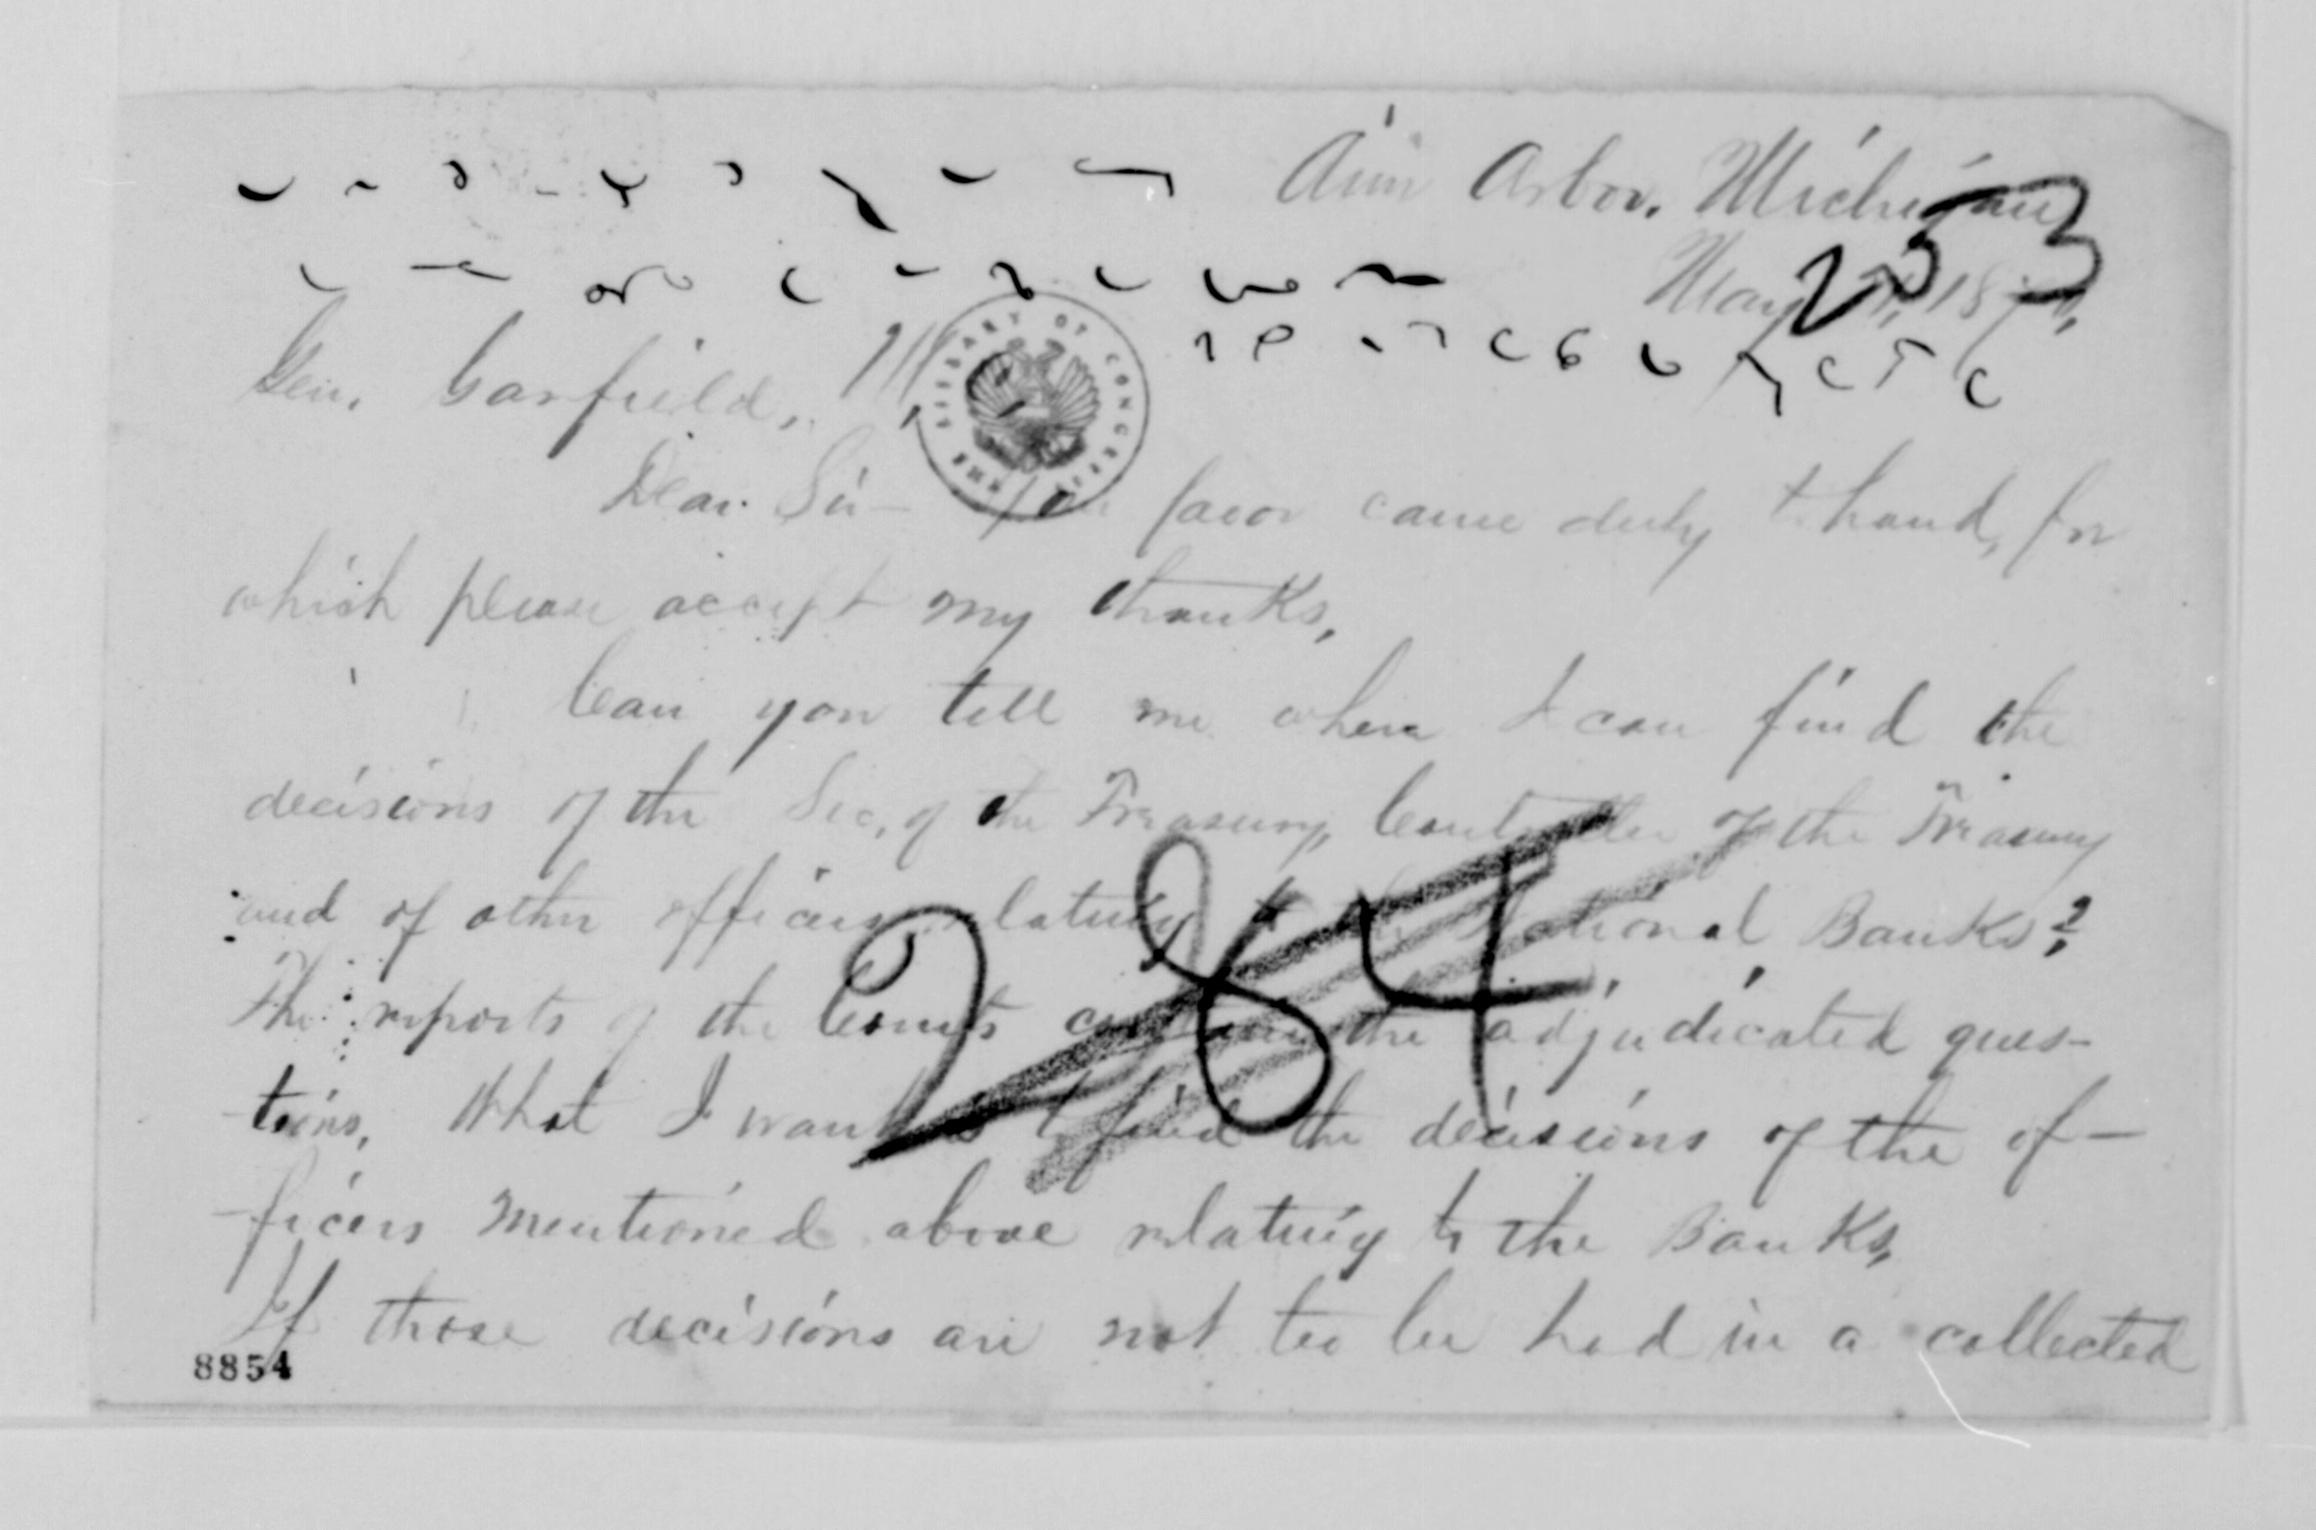 Ann Arbor, Michigan
253
May 18
Gen. Garfield, M.C.
THE LIBRARY OF CONGRESS
Dear Sir — Your favor came duly to hand, for
which please accept my thanks,
Can you tell me where I can find the
decisions of the Sec. of the Treasury, Comptroller of the Treasury
and of other officers relating to the National Banks?
The reports of the Courts contain the adjudicated ques-
-tions, What I want is to find the decisions of the of-
-ficers mentioned above relating to the Banks,
284
If those decisions are not to be had in a collected
8854